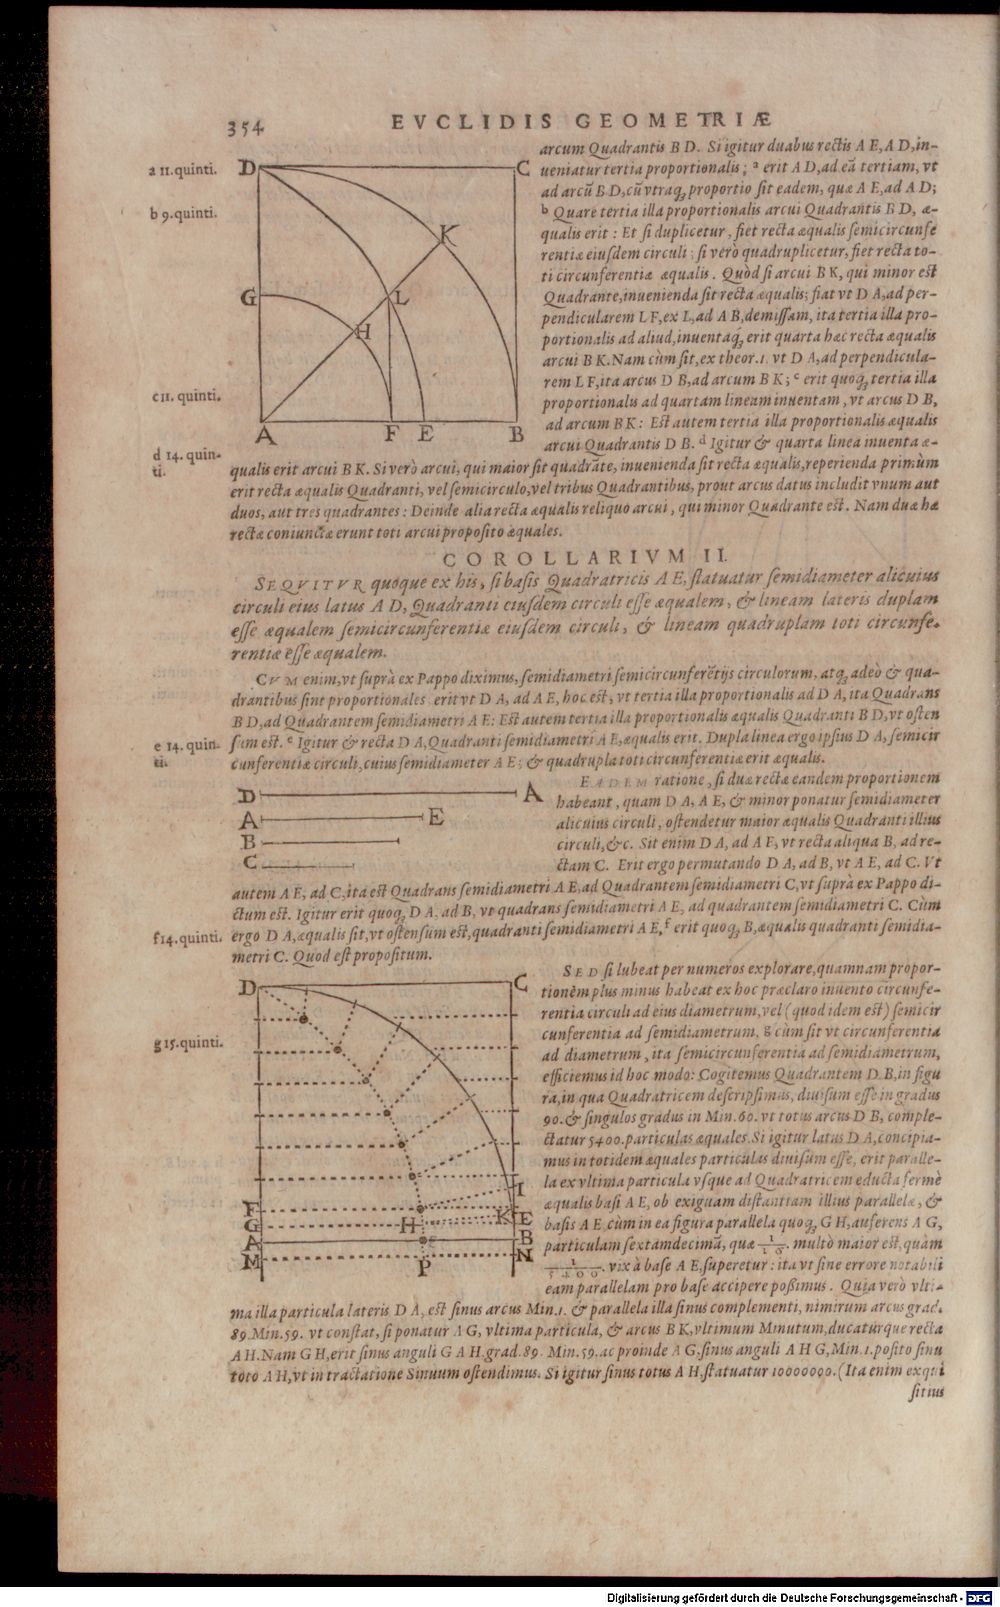 354 EVCLIDIS GEOMETRIÆ
a 11. quinti.
b 9. quinti.
c 11. quinti.
d 14. quin-
ti.
D C K G L H A F E B
arcum Quadrantis B D. Si igitur duabus rectis A E, A D, in-
ueniatur tertia proportionalis; ᵃ erit A D, ad eã tertiam, vt
ad arcũ B D, cũ vtraq; proportio sit eadem, quæ A E, ad A D;
ᵇ Quare tertia illa proportionalis arcui Quadrantis B D, æ-
qualis erit: Et si duplicetur, fiet recta æqualis semicircunfe
rentiæ eiusdem circuli; si verò quadruplicetur, fiet recta to-
ti circunferentiæ æqualis. Quòd si arcui B K, qui minor est
Quadrante, inuenienda sit recta æqualis; fiat vt D A, ad per-
pendicularem L F, ex L, ad A B, demissam, ita tertia illa pro-
portionalis ad aliud, inuentaq; erit quarta hæc recta æqualis
arcui B K. Nam cùm sit, ex theor. 1. vt D A, ad perpendicula-
rem L F, ita arcus D B, ad arcum B K; ᶜ erit quoq; tertia illa
proportionalis ad quartam lineam inuentam, vt arcus D B,
ad arcum B K: Est autem tertia illa proportionalis æqualis
arcui Quadrantis D B. ᵈ Igitur & quarta linea inuenta æ-
qualis erit arcui B K. Si verò arcui, qui maior sit quadrãte, inuenienda sit recta æqualis, reperienda primùm
erit recta æqualis Quadranti, vel semicirculo, vel tribus Quadrantibus, prout arcus datus includit vnum aut
duos, aut tres quadrantes: Deinde alia recta æqualis reliquo arcui, qui minor Quadrante est. Nam duæ hæ
rectæ coniunctæ erunt toti arcui proposito æquales.
COROLLARIVM II.
SEQVITVR quoque ex his, si basis Quadratricis A E, statuatur semidiameter alicuius
circuli eius latus A D, Quadranti eiusdem circuli esse æqualem, & lineam lateris duplam
esse æqualem semicircunferentiæ eiusdem circuli, & lineam quadruplam toti circunfe-
rentiæ esse æqualem.
CVM enim, vt suprà ex Pappo diximus, semidiametri semicircunferẽtijs circulorum, atq; adeò & qua-
drantibus sint proportionales erit vt D A, ad A E, hoc est, vt tertia illa proportionalis ad D A, ita Quadrans
B D, ad Quadrantem semidiametri A E: Est autem tertia illa proportionalis æqualis Quadranti B D, vt osten
sum est. ᵉ Igitur & recta D A, Quadranti semidiametri A E, æqualis erit. Dupla linea ergo ipsius D A, semicir
cunferentiæ circuli, cuius semidiameter A E; & quadrupla toti circunferentiæ erit æqualis.
e 14. quin-
ti.
D A
A E
B
C
EADEM ratione, si duæ rectæ eandem proportionem
habeant, quam D A, A E, & minor ponatur semidiameter
alicuius circuli, ostendetur maior æqualis Quadranti illius
circuli, &c. Sit enim D A, ad A E, vt recta aliqua B, ad re-
ctam C. Erit ergo permutando D A, ad B, vt A E, ad C. Vt
autem A E, ad C, ita est Quadrans semidiametri A E, ad Quadrantem semidiametri C, vt suprà ex Pappo di-
ctum est. Igitur erit quoq; D A, ad B, vt quadrans semidiametri A E, ad quadrantem semidiametri C. Cùm
ergo D A, æqualis sit, vt ostensum est, quadranti semidiametri A E, ᶠ erit quoq; B, æqualis quadranti semidia-
metri C. Quod est propositum.
f 14. quinti.
g 15. quinti.
D C I F K E G H A B M P N
SED si lubeat per numeros explorare, quamnam propor-
tionẽm plus minus habeat ex hoc præclaro inuento circunfe-
rentia circuli ad eius diametrum, vel (quod idem est) semicir
cunferentia ad semidiametrum, ᵍ cùm sit vt circunferentia
ad diametrum, ita semicircunferentia ad semidiametrum,
efficiemus id hoc modo: Cogitemus Quadrantem D B, in figu
ra, in qua Quadratricem descripsimus, diuisum esse in gradus
90. & singulos gradus in Min. 60. vt totus arcus D B, comple-
ctatur 5400. particulas æquales. Si igitur latus D A, concipia-
mus in totidem æquales particulas diuisum esse, erit paralle-
la ex vltima particula vsque ad Quadratricem educta fermè
æqualis basi A E, ob exiguam distantiam illius parallelæ, &
basis A E, cùm in ea figura parallela quoq; G H, auferens A G,
particulam sextamdecimã, quæ 1/16. multò maior est, quàm
1/5400. vix à base A E, superetur: ita vt sine errore notabili
eam parallelam pro base accipere poßimus. Quia verò vlti-
ma illa particula lateris D A, est sinus arcus Min. 1. & parallela illa sinus complementi, nimirum arcus grad.
89. Min. 59. vt constat, si ponatur A G, vltima particula, & arcus B K, vltimum Minutum, ducaturque recta
A H. Nam G H, erit sinus anguli G A H, grad. 89. Min. 59. ac proinde A G, sinus anguli A H G, Min. 1. posito sinu
toto A H, vt in tractatione Sinuum ostendimus. Si igitur sinus totus A H, statuatur 10000000. (Ita enim exqui
sitius
Digitalisierung gefördert durch die Deutsche Forschungsgemeinschaft - DFG